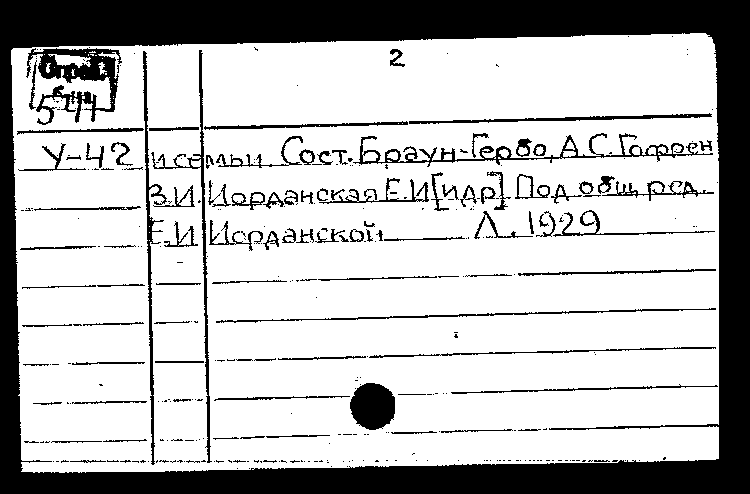 2
544
У-42 и семьи. Сост. Браун-Гербо, А.С. Гафрен
З.И. Иорданская Е.И [идр] Под общ ред.
Е.И Иорданской Л. 1929